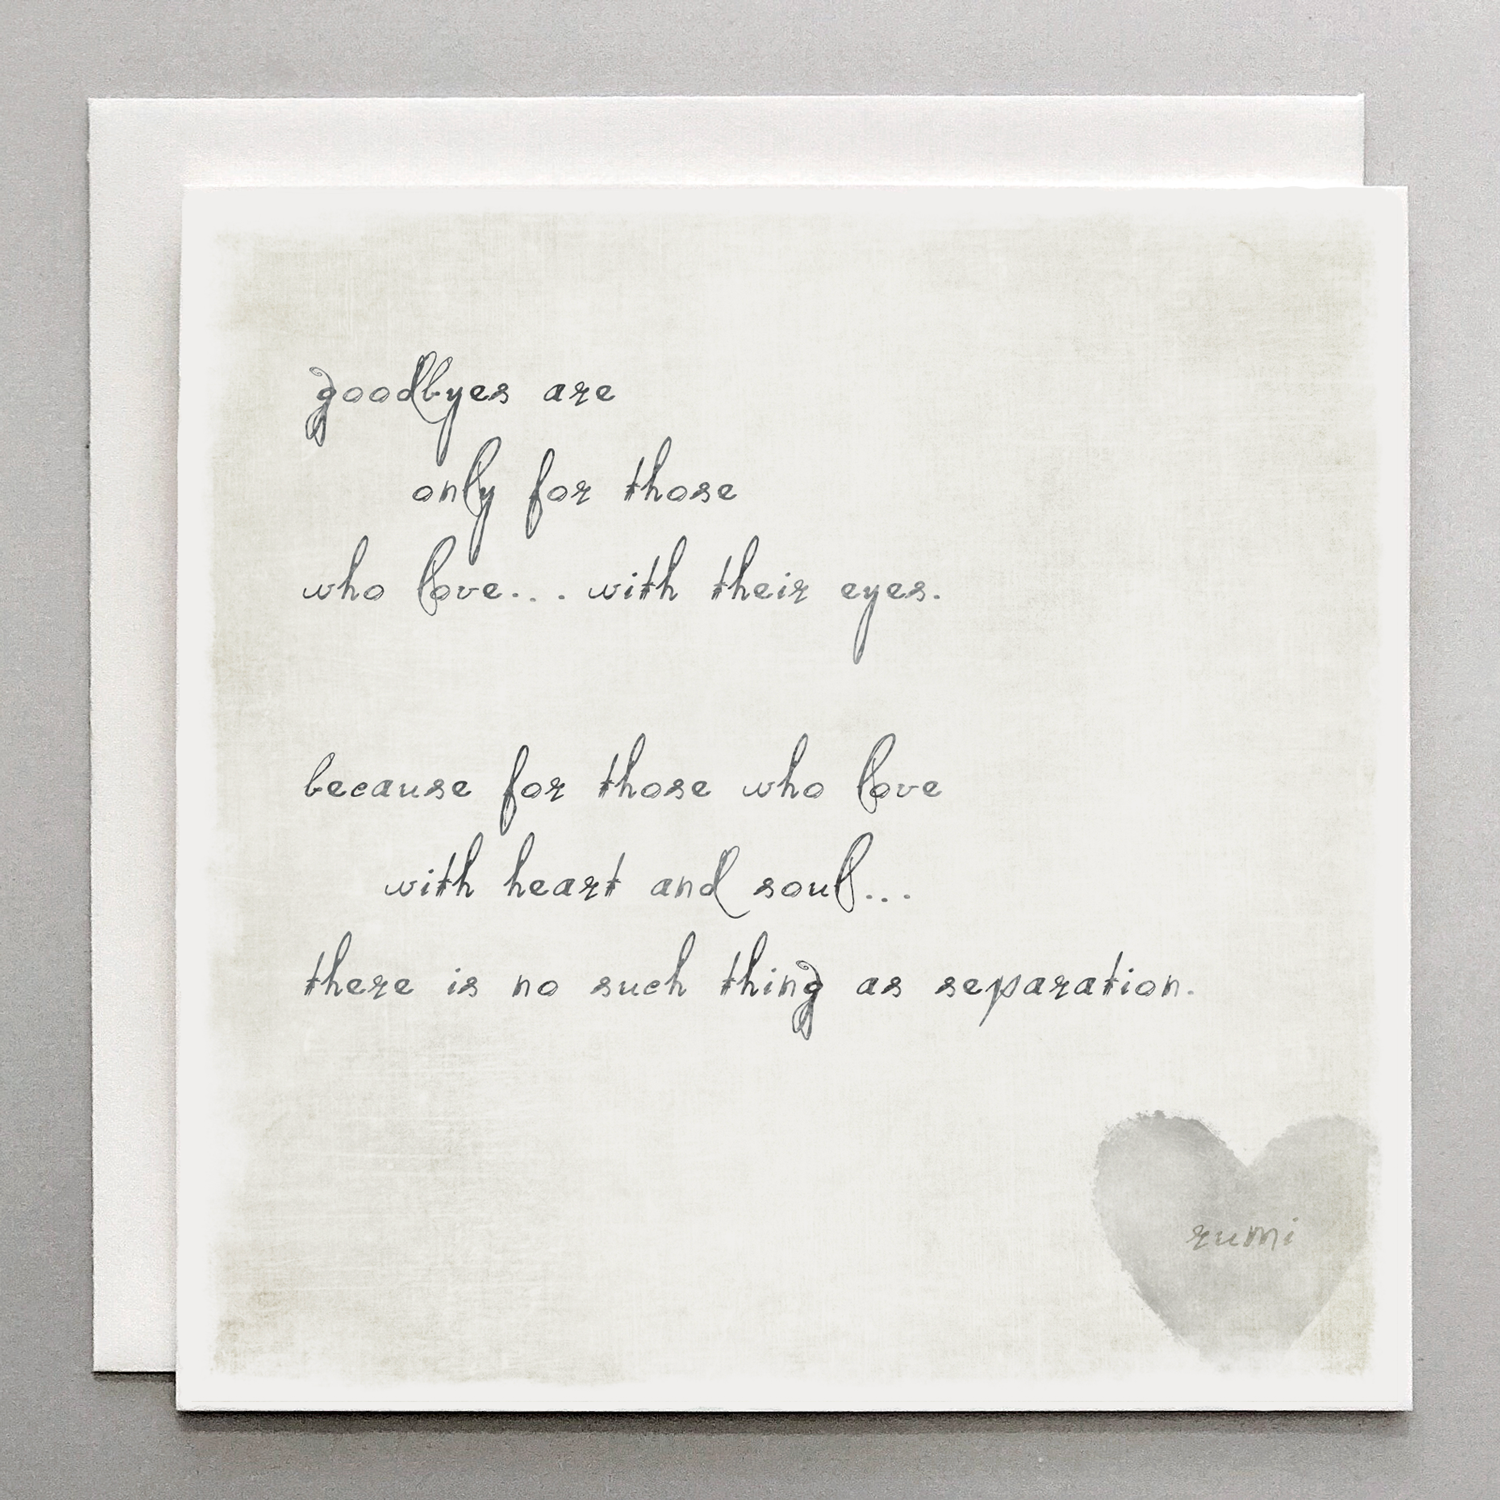 goodbyes are
only for those
who love... with their eyes.
because for those who love
with heart and soul...
there is no such thing as separation.
rumi